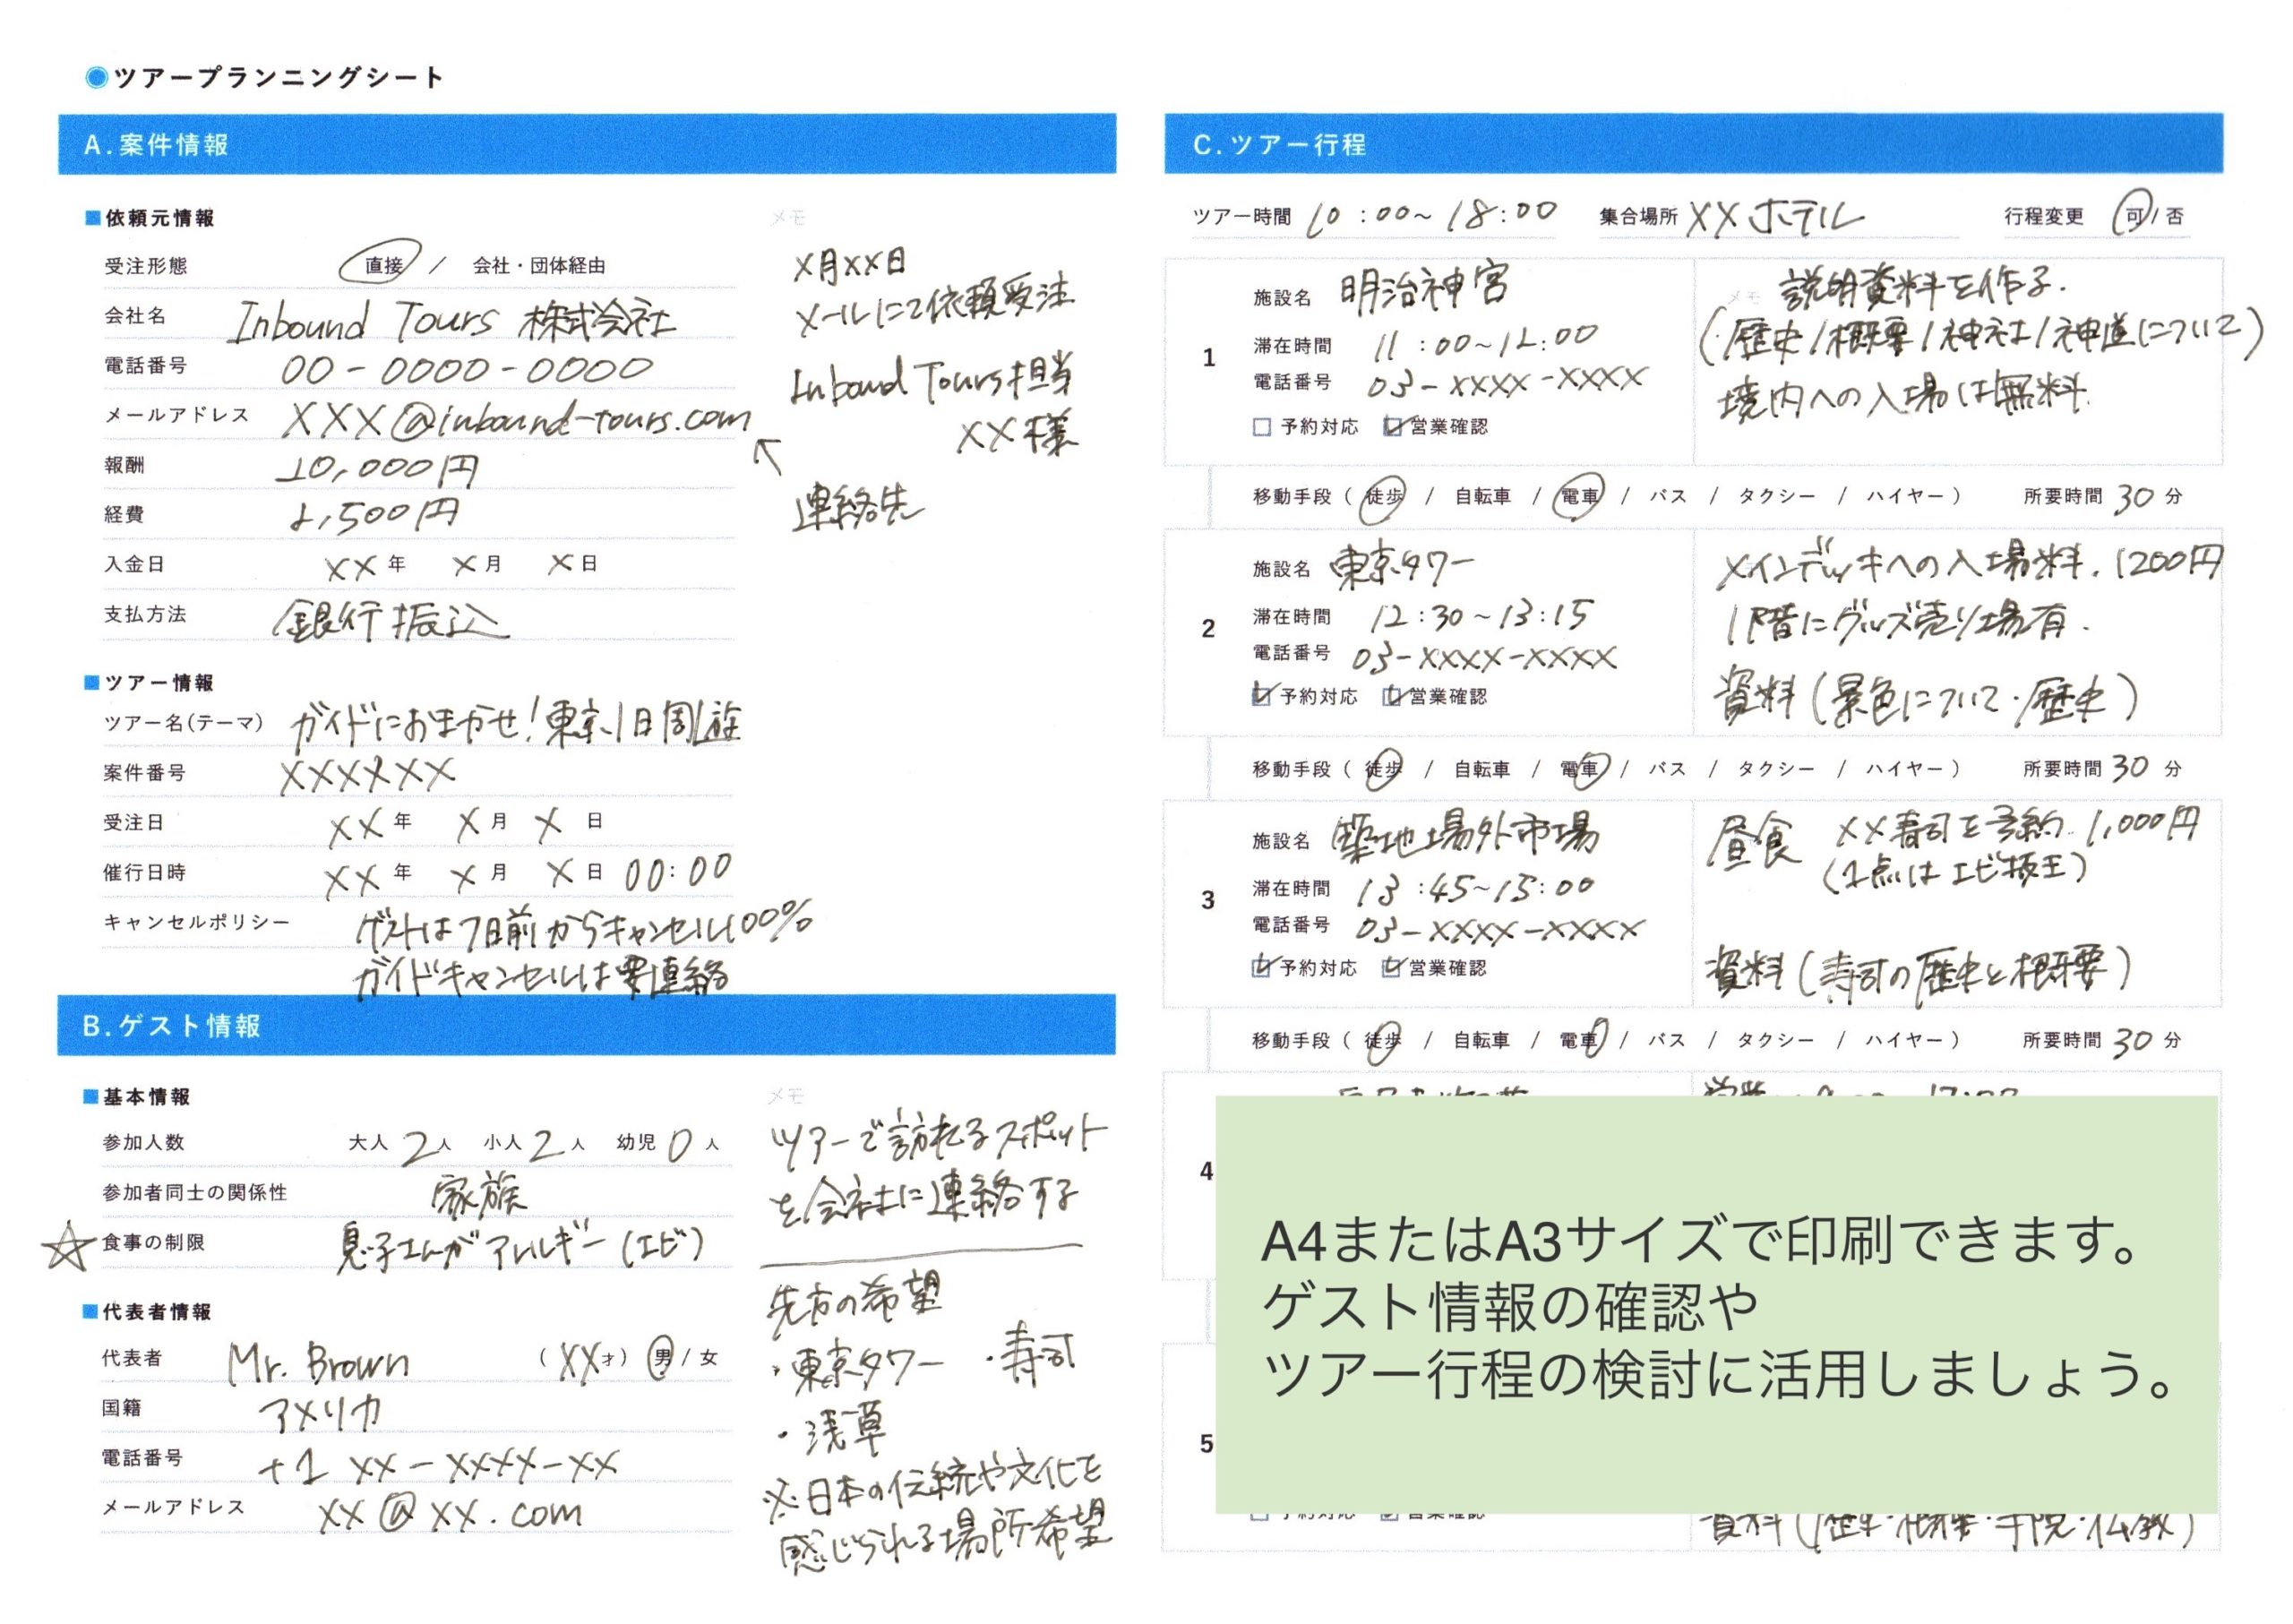 ツアープランニングシート
A.案件情報
■依頼元情報
メモ
受注形態 直接 / 会社・団体経由
会社名 Inbound Tours 株式会社
電話番号 00-0000-0000
メールアドレス XXX@inbound-tours.com
報酬 10,000円
経費 2,500円
入金日 XX年 X月 X日
支払方法 銀行振込
X月XX日
メールにて依頼受注
Inbound Tours担当
XX様
連絡先
■ツアー情報
ツアー名(テーマ) ガイドにおまかせ!東京1日周遊
案件番号 XXXXXX
受注日 XX年 X月 X日
催行日時 XX年 X月 X日 00:00
キャンセルポリシー ゲストは7日前からキャンセル100%
ガイドキャンセルは要連絡
B.ゲスト情報
■基本情報
メモ
参加人数 大人2人 小人2人 幼児0人
参加者同士の関係性 家族
☆食事の制限 息子さんがアレルギー(エビ)
■代表者情報
代表者 Mr. Brown (XX才) 男/女
国籍 アメリカ
電話番号 +1 XX-XXXX-XX
メールアドレス XX@XX.com
ツアーで訪れるスポット
を会社に連絡する
先方の希望
・東京タワー ・寿司
・浅草
※日本の伝統や文化を
感じられる場所希望
C.ツアー行程
ツアー時間 10:00~18:00 集合場所 XXホテル 行程変更 可/否
1
施設名 明治神宮
滞在時間 11:00~12:00
電話番号 03-XXXX-XXXX
□予約対応 ☑営業確認
メモ
説明資料を作る.
(歴史/概要/神社/神道について)
境内への入場は無料.
移動手段( 徒歩 / 自転車 / 電車 / バス / タクシー / ハイヤー ) 所要時間30分
2
施設名 東京タワー
滞在時間 12:30~13:15
電話番号 03-XXXX-XXXX
☑予約対応 ☑営業確認
メインデッキへの入場料.1200円
1階にグッズ売り場有.
資料(景色について・歴史)
移動手段( 徒歩 / 自転車 / 電車 / バス / タクシー / ハイヤー ) 所要時間30分
3
施設名 築地場外市場
滞在時間 13:45~15:00
電話番号 03-XXXX-XXXX
☑予約対応 ☑営業確認
昼食 XX寿司を予約 1,000円
(1点はエビ抜き)
資料(寿司の歴史と概要)
移動手段( 徒歩 / 自転車 / 電車 / バス / タクシー / ハイヤー ) 所要時間30分
4
5
A4またはA3サイズで印刷できます。
ゲスト情報の確認や
ツアー行程の検討に活用しましょう。
資料(歴史・概要・寺院・仏教)